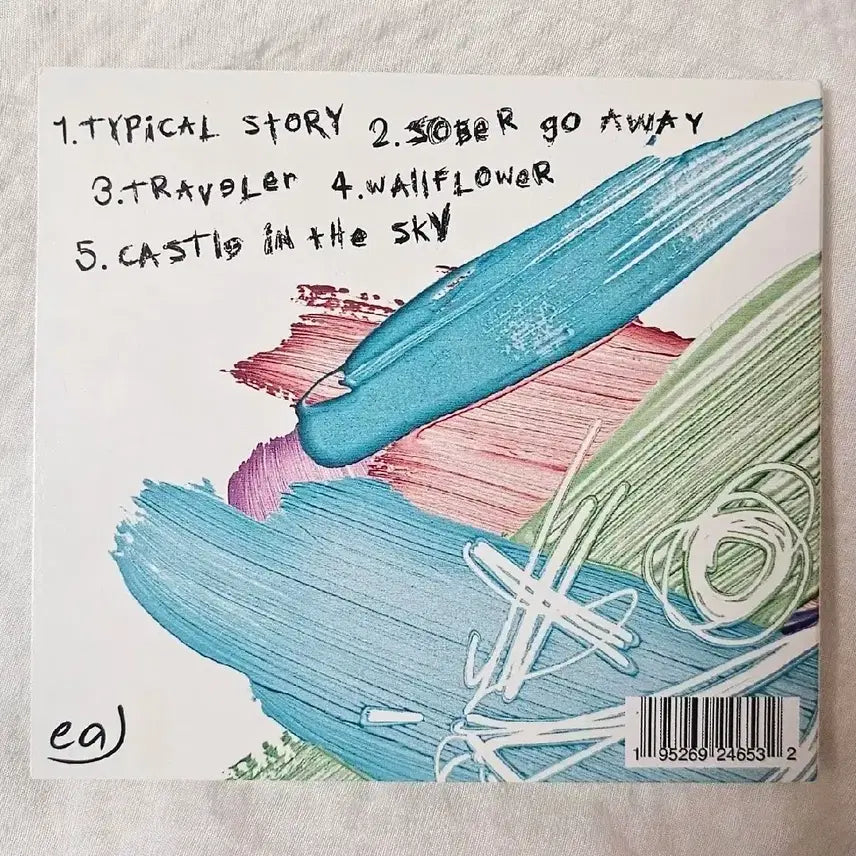 1.TYPiCAL StORY 2.SOBeR gO AWAY
3.tRAVeLer 4.WAllFLOWeR
5.CAStle iN tHe SKY
eaJ
1 95269 24653 2